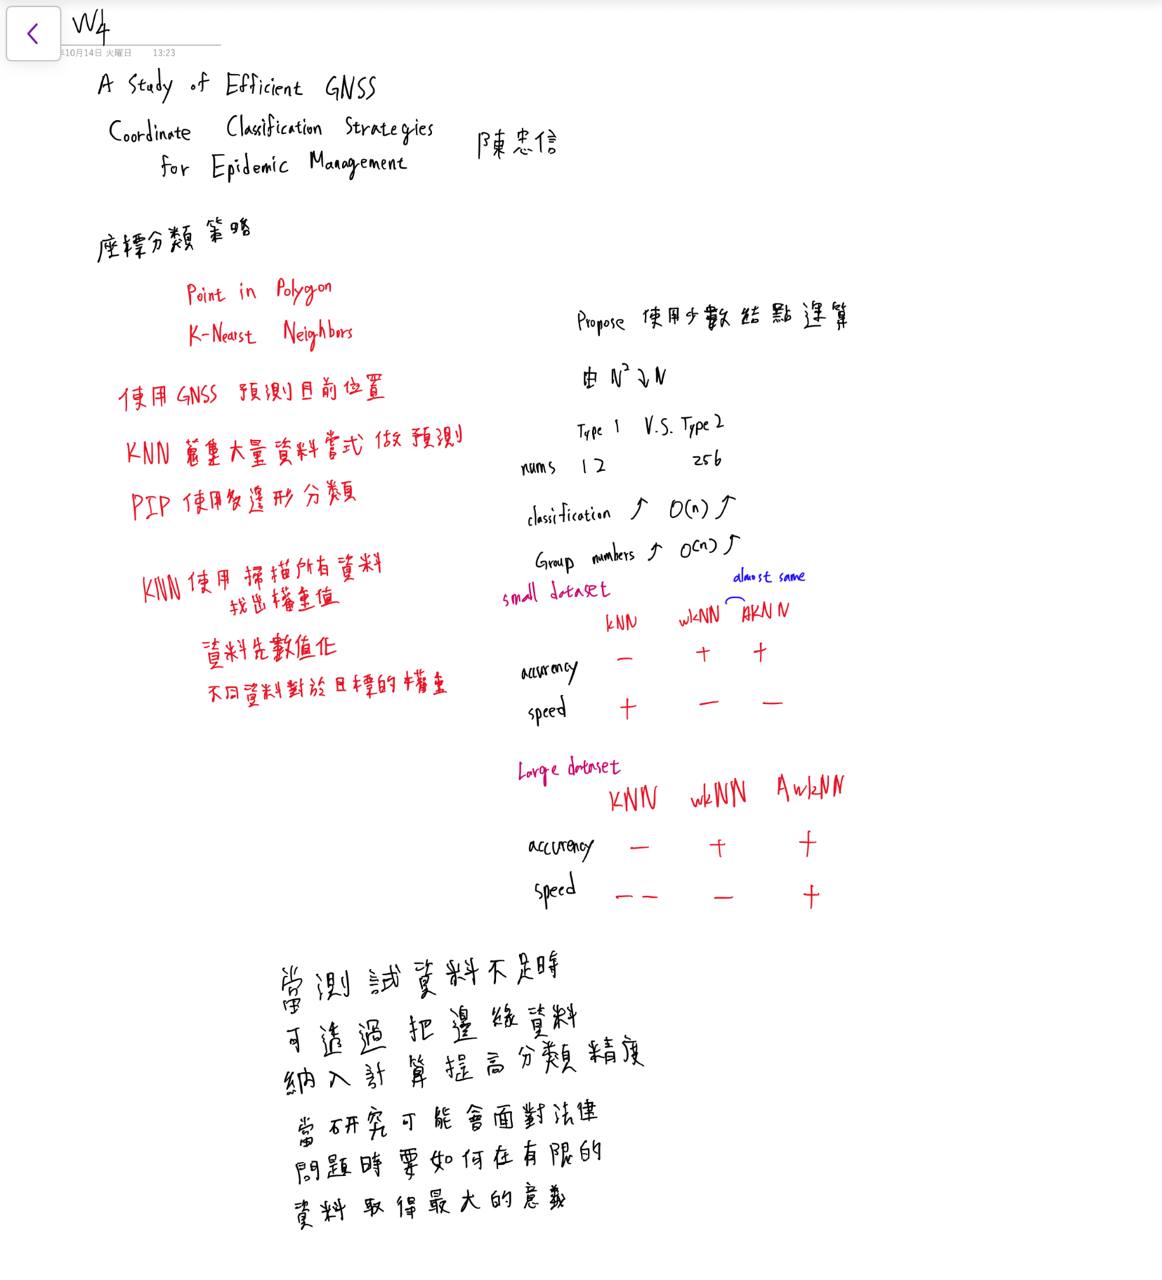 W4
年10月14日 火曜日 13:23
A Study of Efficient GNSS
Coordinate Classification Strategies
for Epidemic Management
陳忠信
座標分類策略
Point in Polygon
K-Nearst Neighbors
使用GNSS 預測目前位置
KNN 蒐集大量資料嘗試做預測
PIP 使用多邊形分類
KNN使用掃描所有資料
找出權重值
資料先數值化
不同資料對於目標的權重
Propose 使用少數結點運算
由 N² ↘ N
Type 1 V.S. Type 2
nums 12 256
classification ↑ O(n) ↑
Group numbers ↑ O(n) ↑
small dataset
almost same
kNN wkNN AKNN
accurency - + +
speed + - -
Large dataset
KNN wkNN AwkNN
accurency - + +
speed -- - +
當測試資料不足時
可透過把邊緣資料
納入計算提高分類精度
當研究可能會面對法律
問題時要如何在有限的
資料取得最大的意義